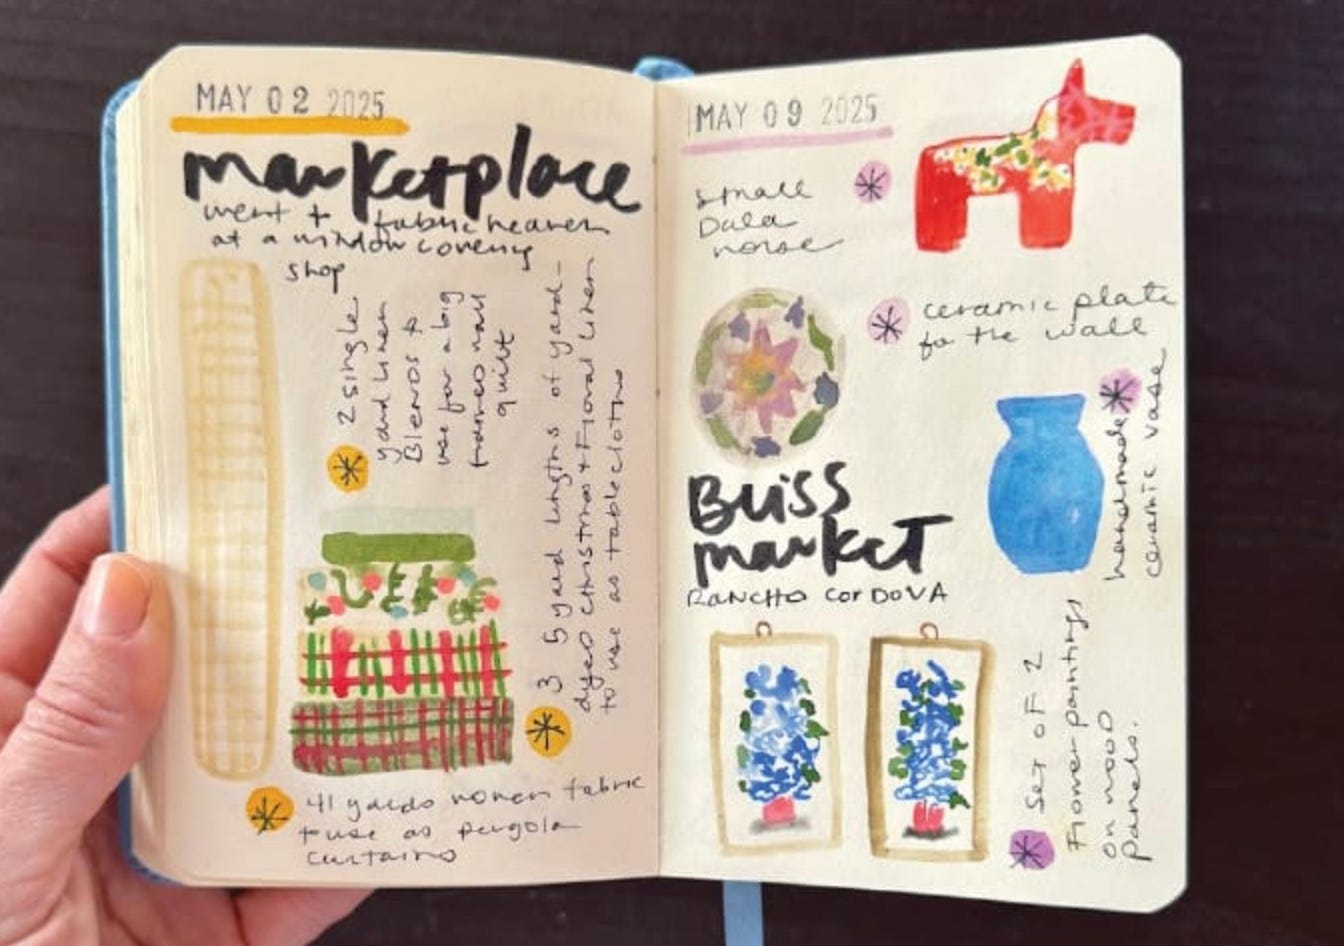 MAY 02 2025
marketplace
went + fabric heaven
at a window covering
shop
2 single
yard linen
Blends to
use for a big
framed wall
quilt
3 5 yard lengths of yard-
dyed christmas + Floral linen
to use as tablecloths
41 yards woven fabric
to use as pergola
curtains
MAY 09 2025
small
Dala
horse
ceramic plate
for the wall
handmade
ceramic vase
Bliss
market
RANCHO CORDOVA
Set OF 2
Flower paintings
on wood
panels.